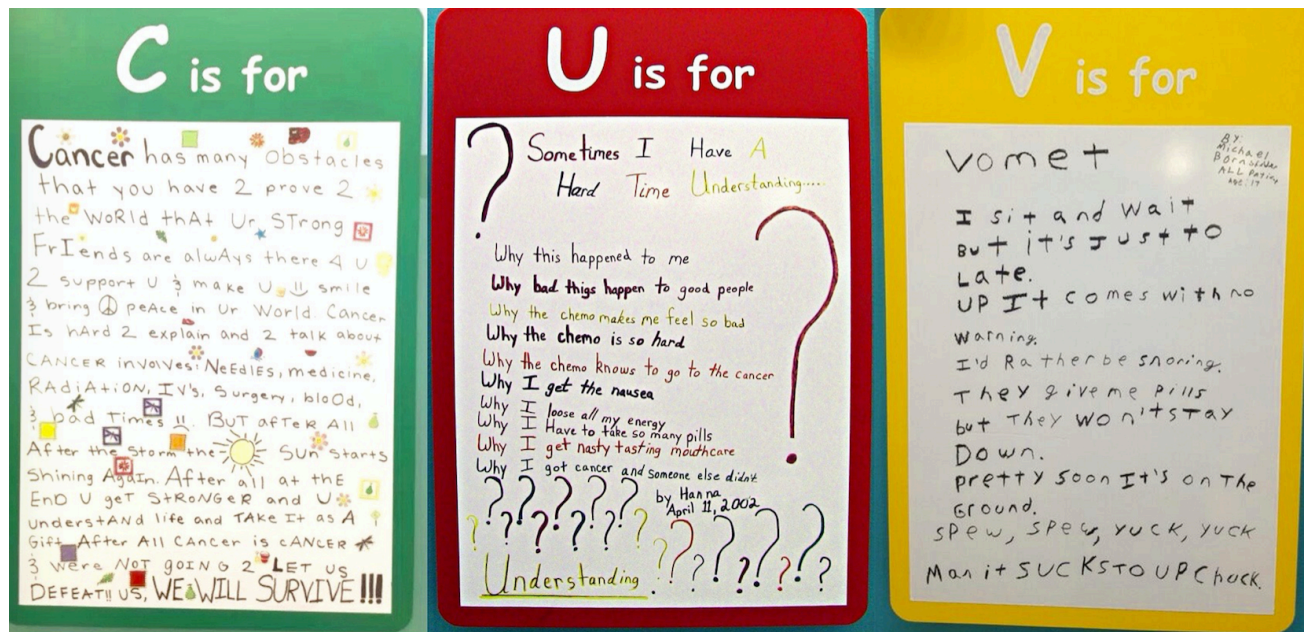 C is for
Cancer has many Obstacles
that you have 2 prove 2
the WoRld thAt Ur STrong
FrIends are alwAys there 4 U
2 support U & make U smile
& bring ☮ peAce in Ur World. Cancer
Is hArd 2 explain and 2 talk about
CANCER involves: NeEdlEs, medicine,
RAdiAtioN, IV's, Surgery, bloOd,
& bad Times !!. BUT afTeR All
After the Storm the Sun Starts
Shining AgaIn. After all at thE
EnD U geT StRoNGeR and U
understAND life and TAke It as A
Gift. After All CAncer is cANCER
& were NOT goING 2 LET us
DEFEAT!! US, WE WILL SURVIVE!!!
U is for
? Sometimes I Have A
Hard Time Understanding....
?
Why this happened to me
Why bad thigs happen to good people
Why the chemo makes me feel so bad
Why the chemo is so hard
Why the chemo knows to go to the cancer
Why I get the nausea
Why I loose all my energy
Why I Have to take so many pills
Why I get nasty tasting mouthcare
Why I got cancer and someone else didn't
by Hanna
April 11, 2002
Understanding
V is for
BY:
Michael
ALL
Age: 17
vomet
I sit and Wait
But it's Just to
Late.
UP It comes with no
warning.
I'd Rather be snoring.
They give me Pills
but They won't stay
Down.
pretty soon It's on The
Ground.
Spew, Spew, YUCK, YUCK
Man it SUCKS TO UP Chuck.